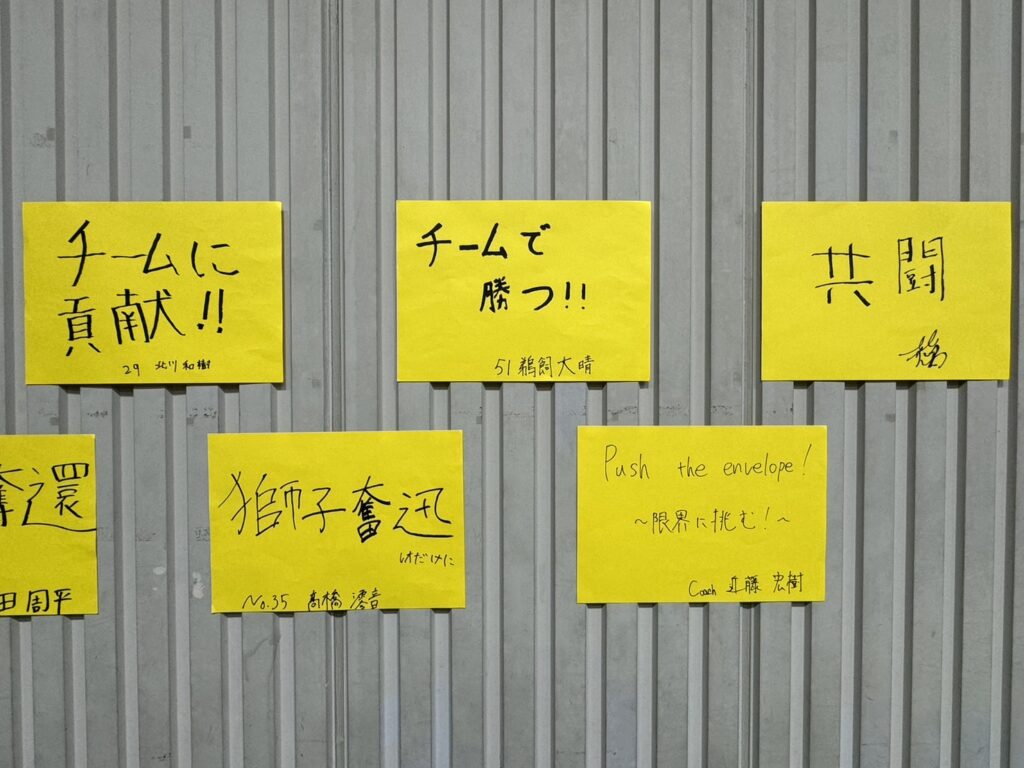 チームに
貢献!!
29 北川 和樹
チームで
勝つ!!
51 鵜飼大晴
共闘
奪還
田 周平
獅子奮迅
はだけに
No.35 高橋 澪音
Push the envelope!
~限界に挑む!~
Coach 近藤 宏樹